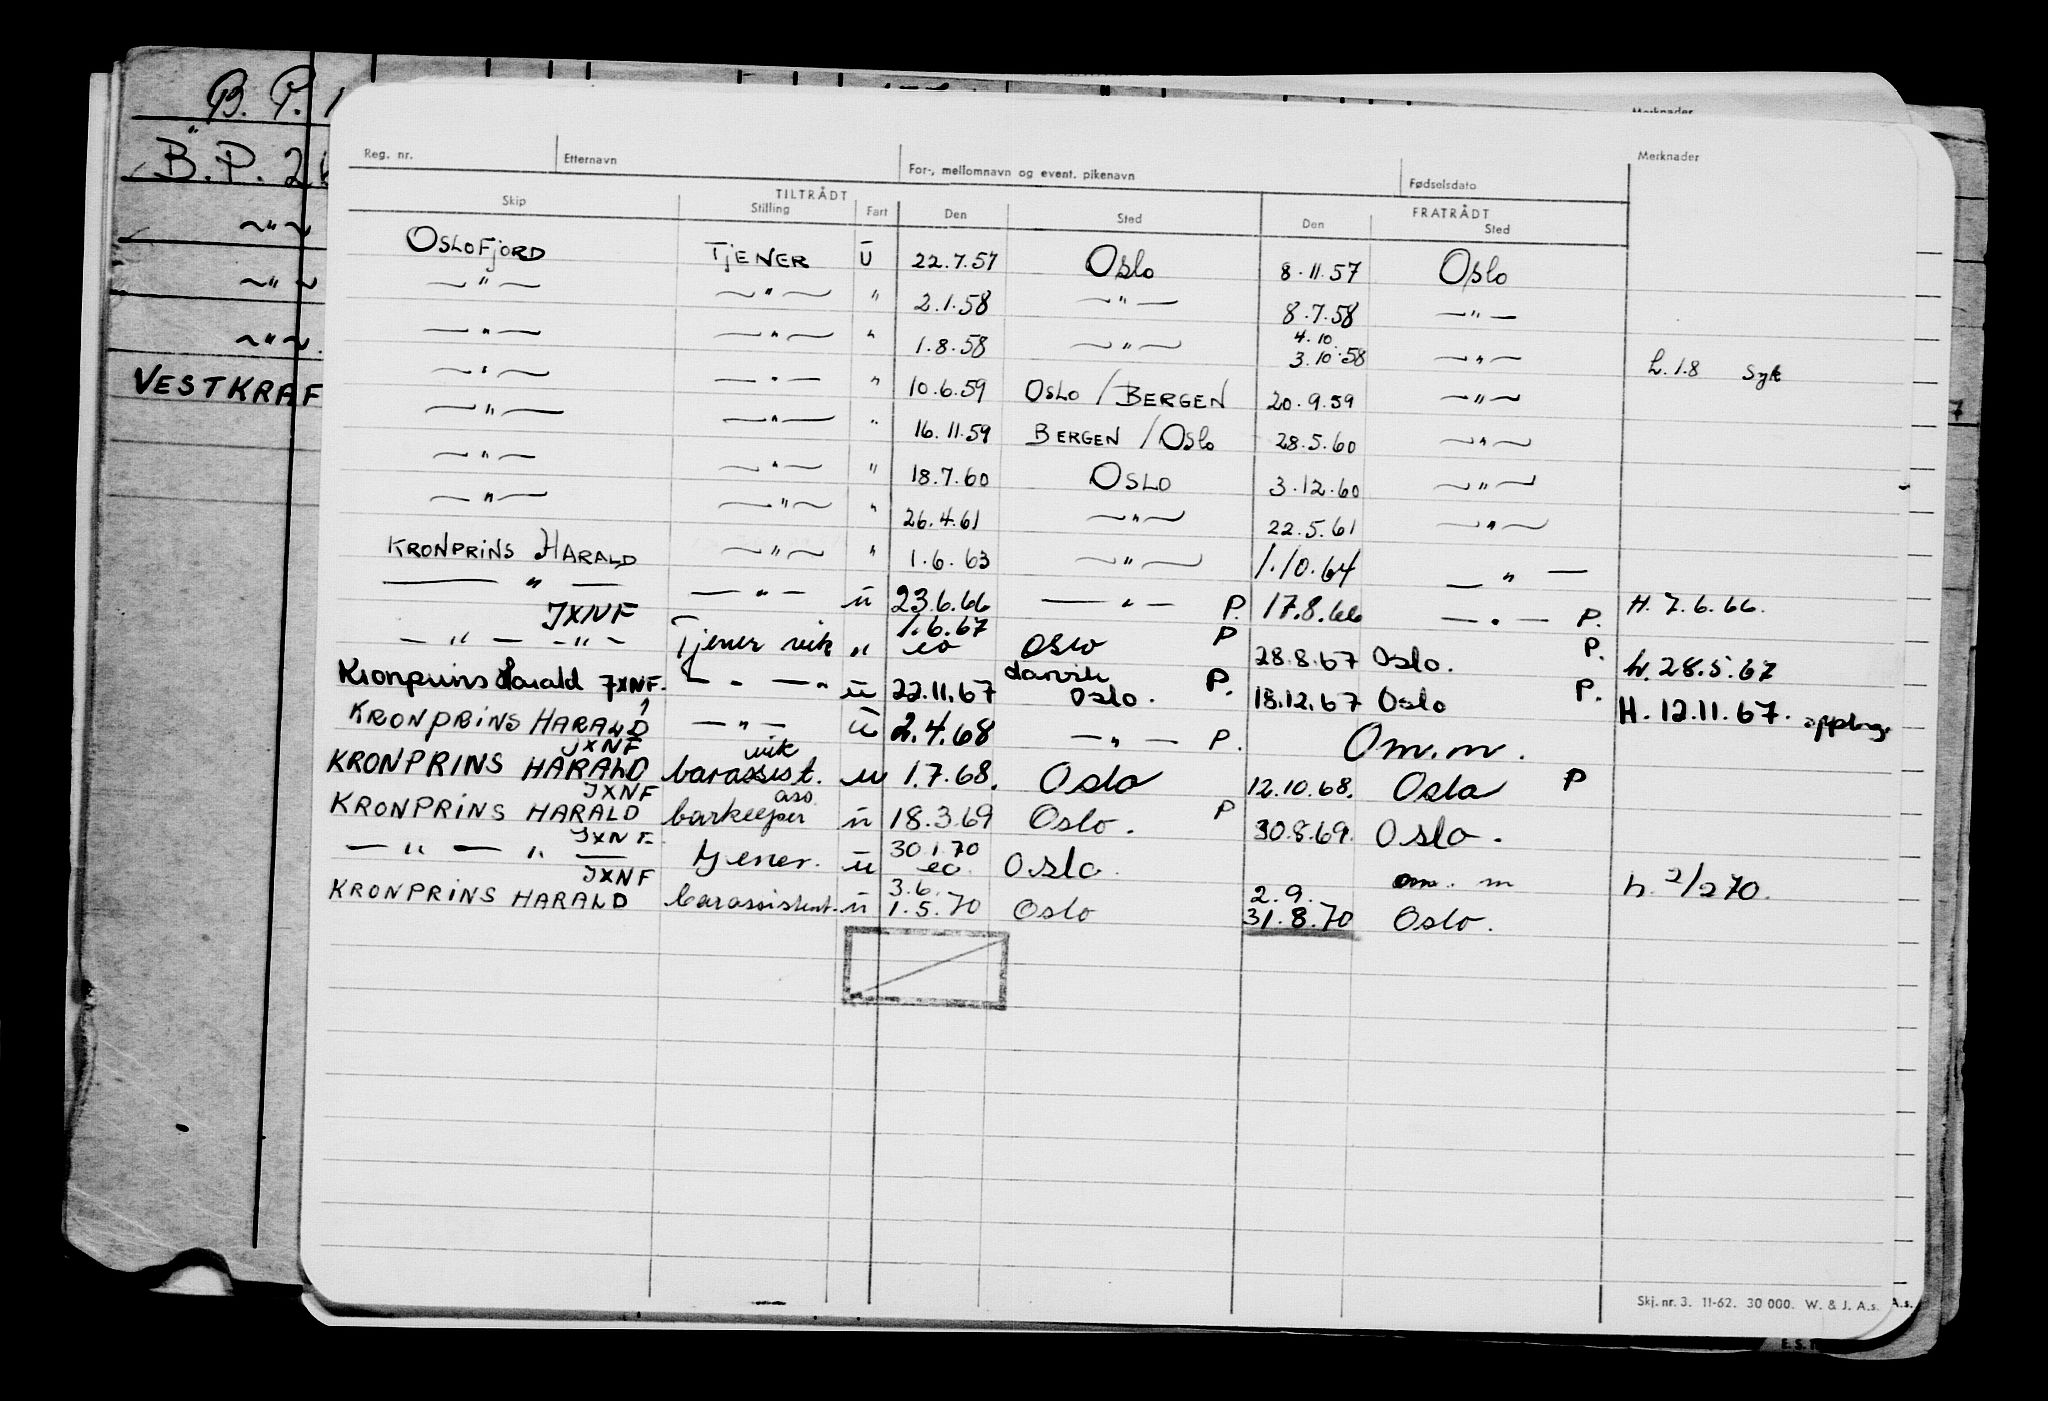 B. P. 1
B. P. 2
~ " ~
~ " ~
~ " ~
VESTKRAF
Merknader
Reg. nr. Etternavn For-, mellomnavn og event. pikenavn Fødselsdato Merknader
TILTRÅDT FRATRÅDT
Skip Stilling Fart Den Sted Den Sted
OSLOFJORD TJENER Ū 22.7.57 Oslo 8.11.57 Oslo
— " — — " — " 2.1.58 — " — 8.7.58 — " —
4.10.
— " — — " — " 1.8.58 — " — 3.10.58 — " — h. 1.8 Syk
— " — — " — " 10.6.59 OSLO / BERGEN 20.9.59 — " —
— " — — " — " 16.11.59 BERGEN / Oslo 28.5.60 — " —
— " — — " — " 18.7.60 OSLO 3.12.60 — " —
— " — — " — " 26.4.61 — " — 22.5.61 — " —
KRONPRINS HARALD — " — " 1.6.63 — " — 1.10.64 — " —
— " — — " — ū 23.6.66 — " — P. 17.8.66 — " — P. H. 7.6.66.
JXNF 1.6.67
— " — — " — Tjener vik " ca Oslo P 28.8.67 Oslo. P. h. 28.5.67
Larvik
Kronprins Harald JXNF. — " — " ū 22.11.67 Oslo. P. 18.12.67 Oslo P. H. 12.11.67. oppbrgs
KRONPRINS HARALD — " — ū 2.4.68 — " — P. Om.m.
JXNF vik
KRONPRINS HARALD barassist. ū 1.7.68. Oslo 12.10.68. Oslo P
JXNF ass.
KRONPRINS HARALD barkeeper ū 18.3.69 Oslo. P 30.8.69. Oslo.
JXNF 30.1.70
— " — " — tjener. ū ca. Oslo. om. m h. 2/2 70.
JXNF 3.6. 2.9.
KRONPRINS HARALD barassistent. ū 1.5.70 Oslo 31.8.70 Oslo.
Skj. nr. 3. 11-62. 30 000. W. & J. A.s. A.s.